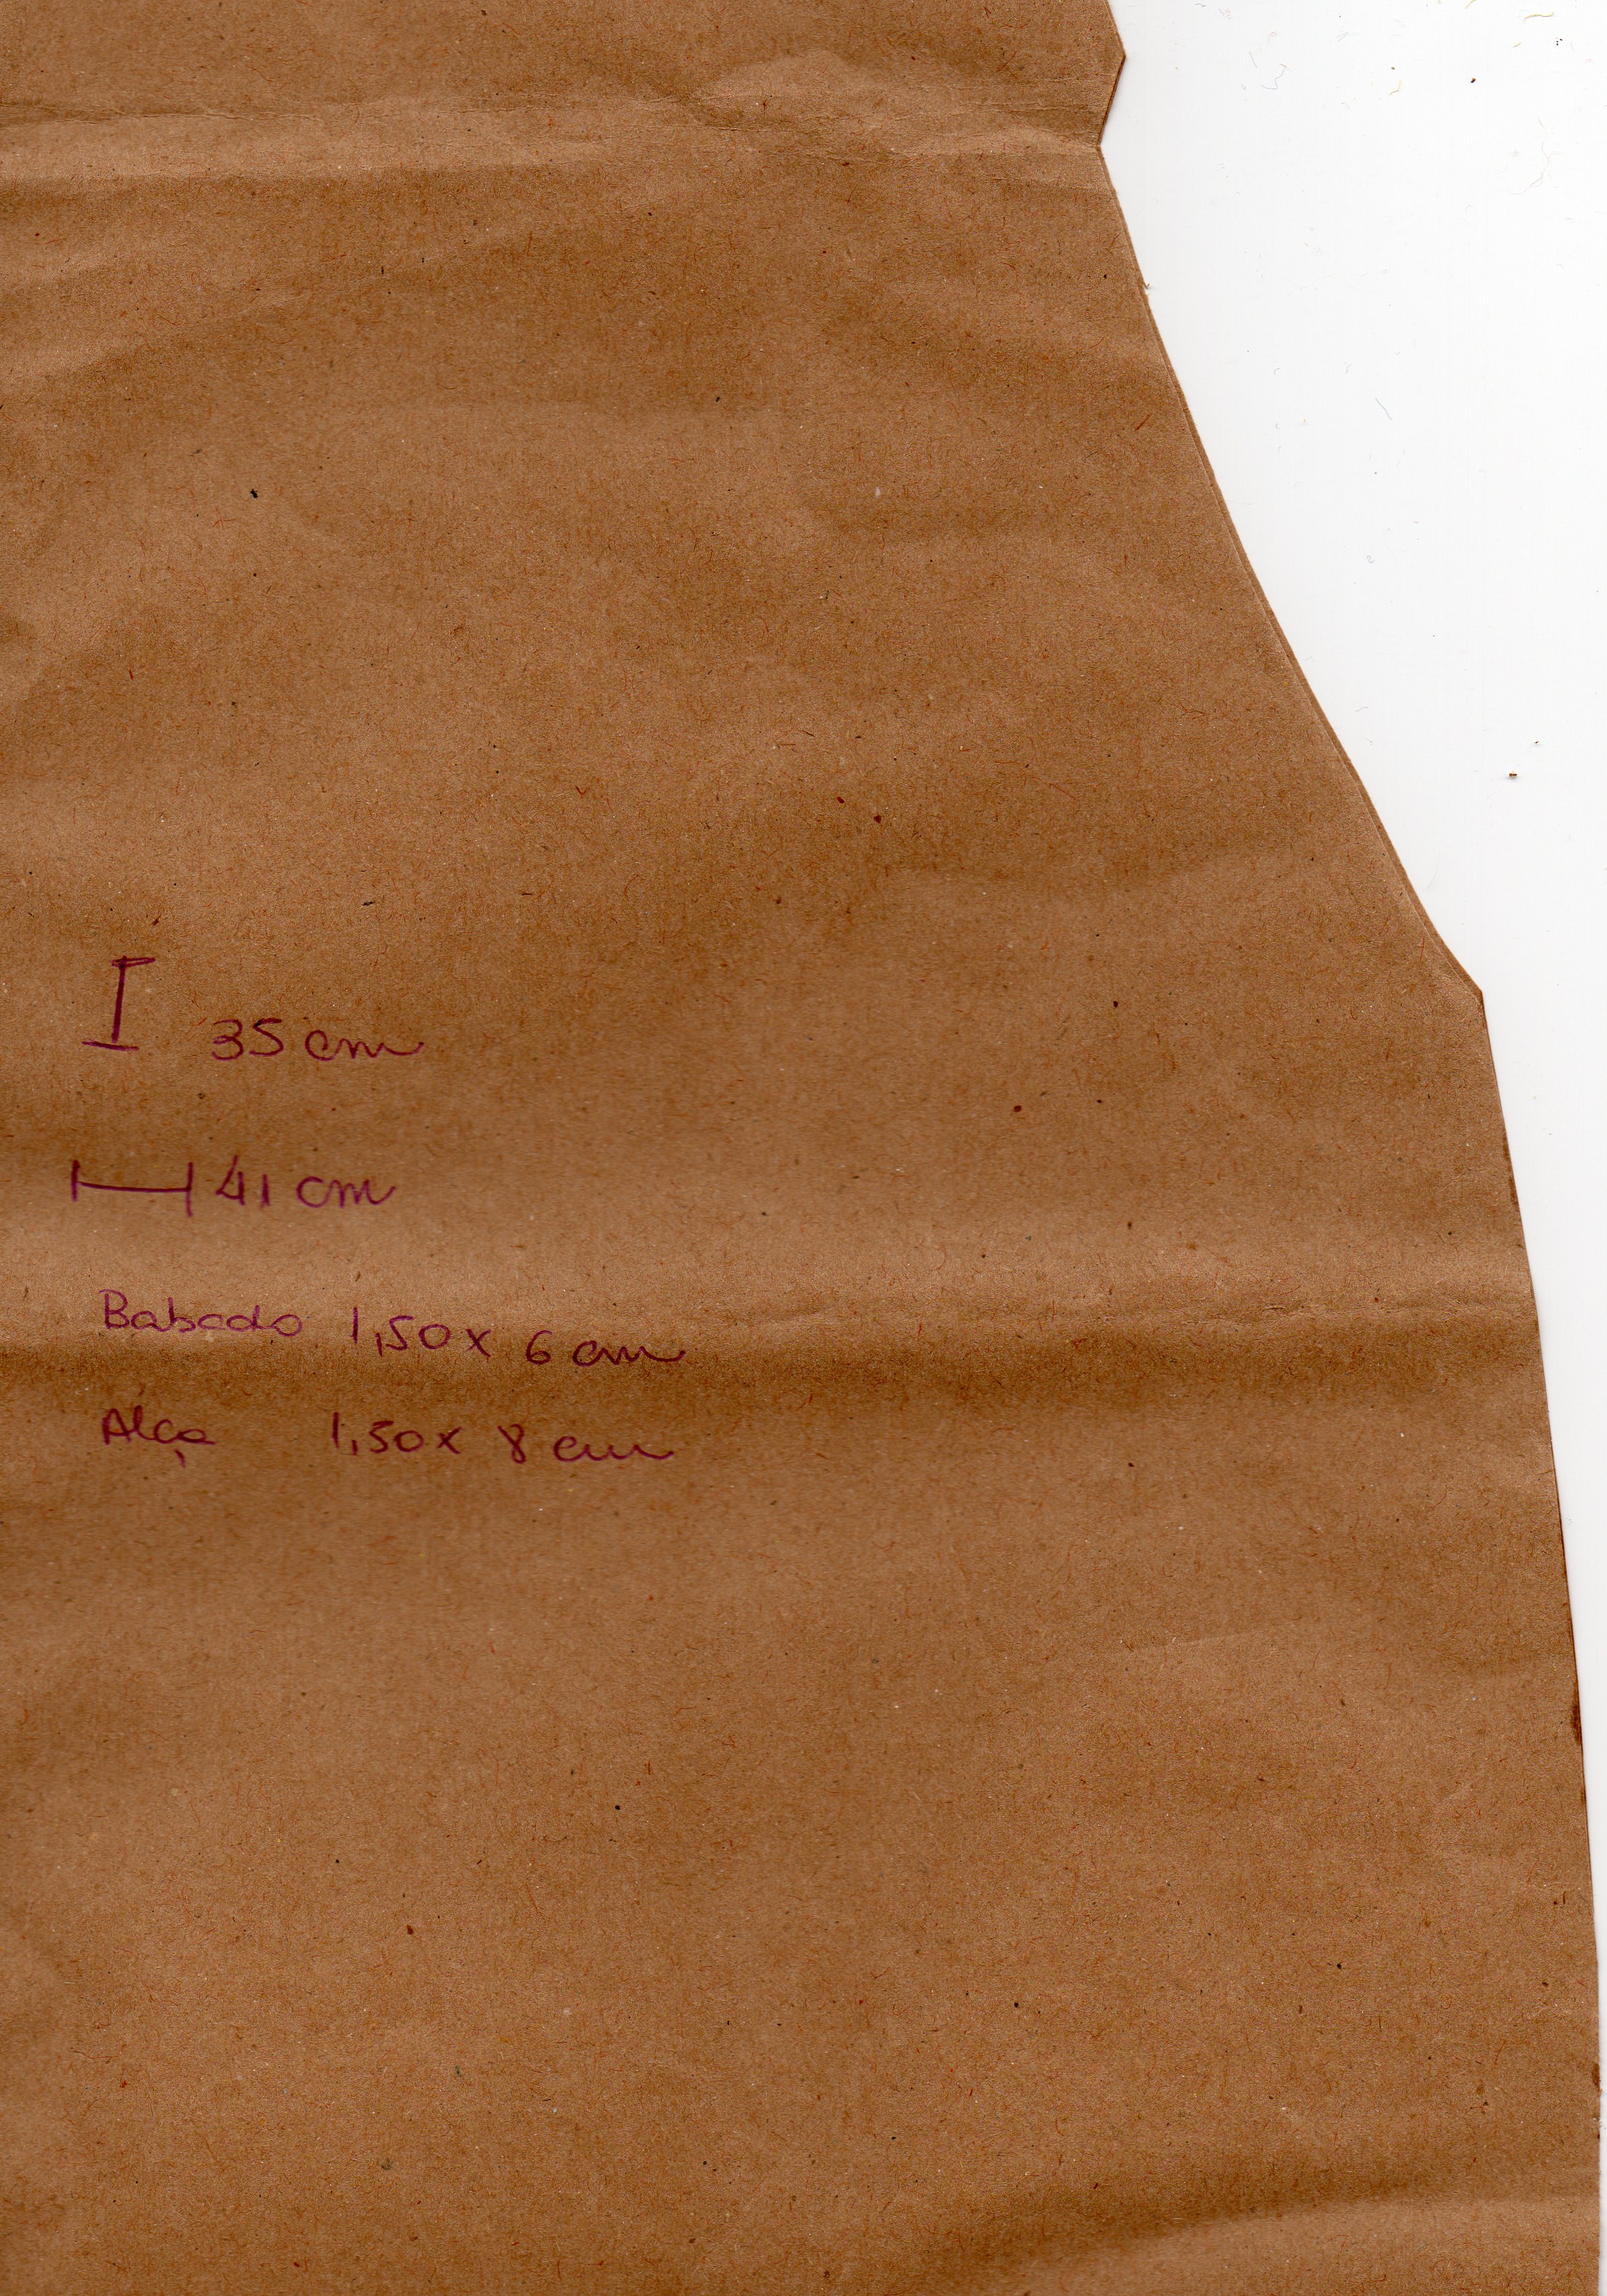 35 cm
41 cm
Babado 1,50 x 6 cm
Alça 1,50 x 8 cm